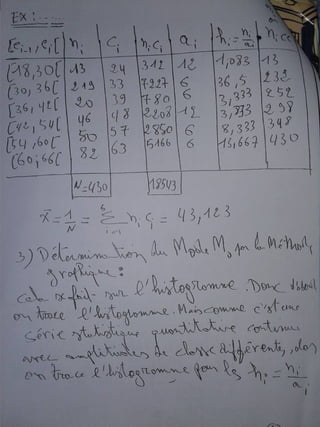 EX: ......
[ei-1, ei[ ni ci ni ci ai hi = ni/ai ni cc
[18,30[ 13 24 312 12 1,083 13
[30,36[ 219 33 7227 6 36,5 232
[36,42[ 20 39 780 6 3,333 252
[42,54[ 46 48 2208 12 3,833 298
[54,60[ 50 57 2850 6 8,333 348
[60,66[ 82 63 5166 6 13,667 430
N=430 18543
x̄ = 1/N = 6 Σ i=1 ni ci = 43,123
3) Détermination du Mode Mo par la Méthode
graphique:
cela se fait sur l'histogramme. Donc d'abord
on trace l'histogramme. Mais comme c'est une
série statistique quantitative continue
avec amplitudes de classe différentes, alors
on trace l'histogramme pour les hi = ni/ai